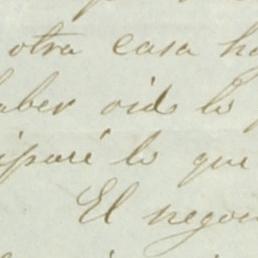 otra casa ha
aber oido lo
iparé lo que
El negoc